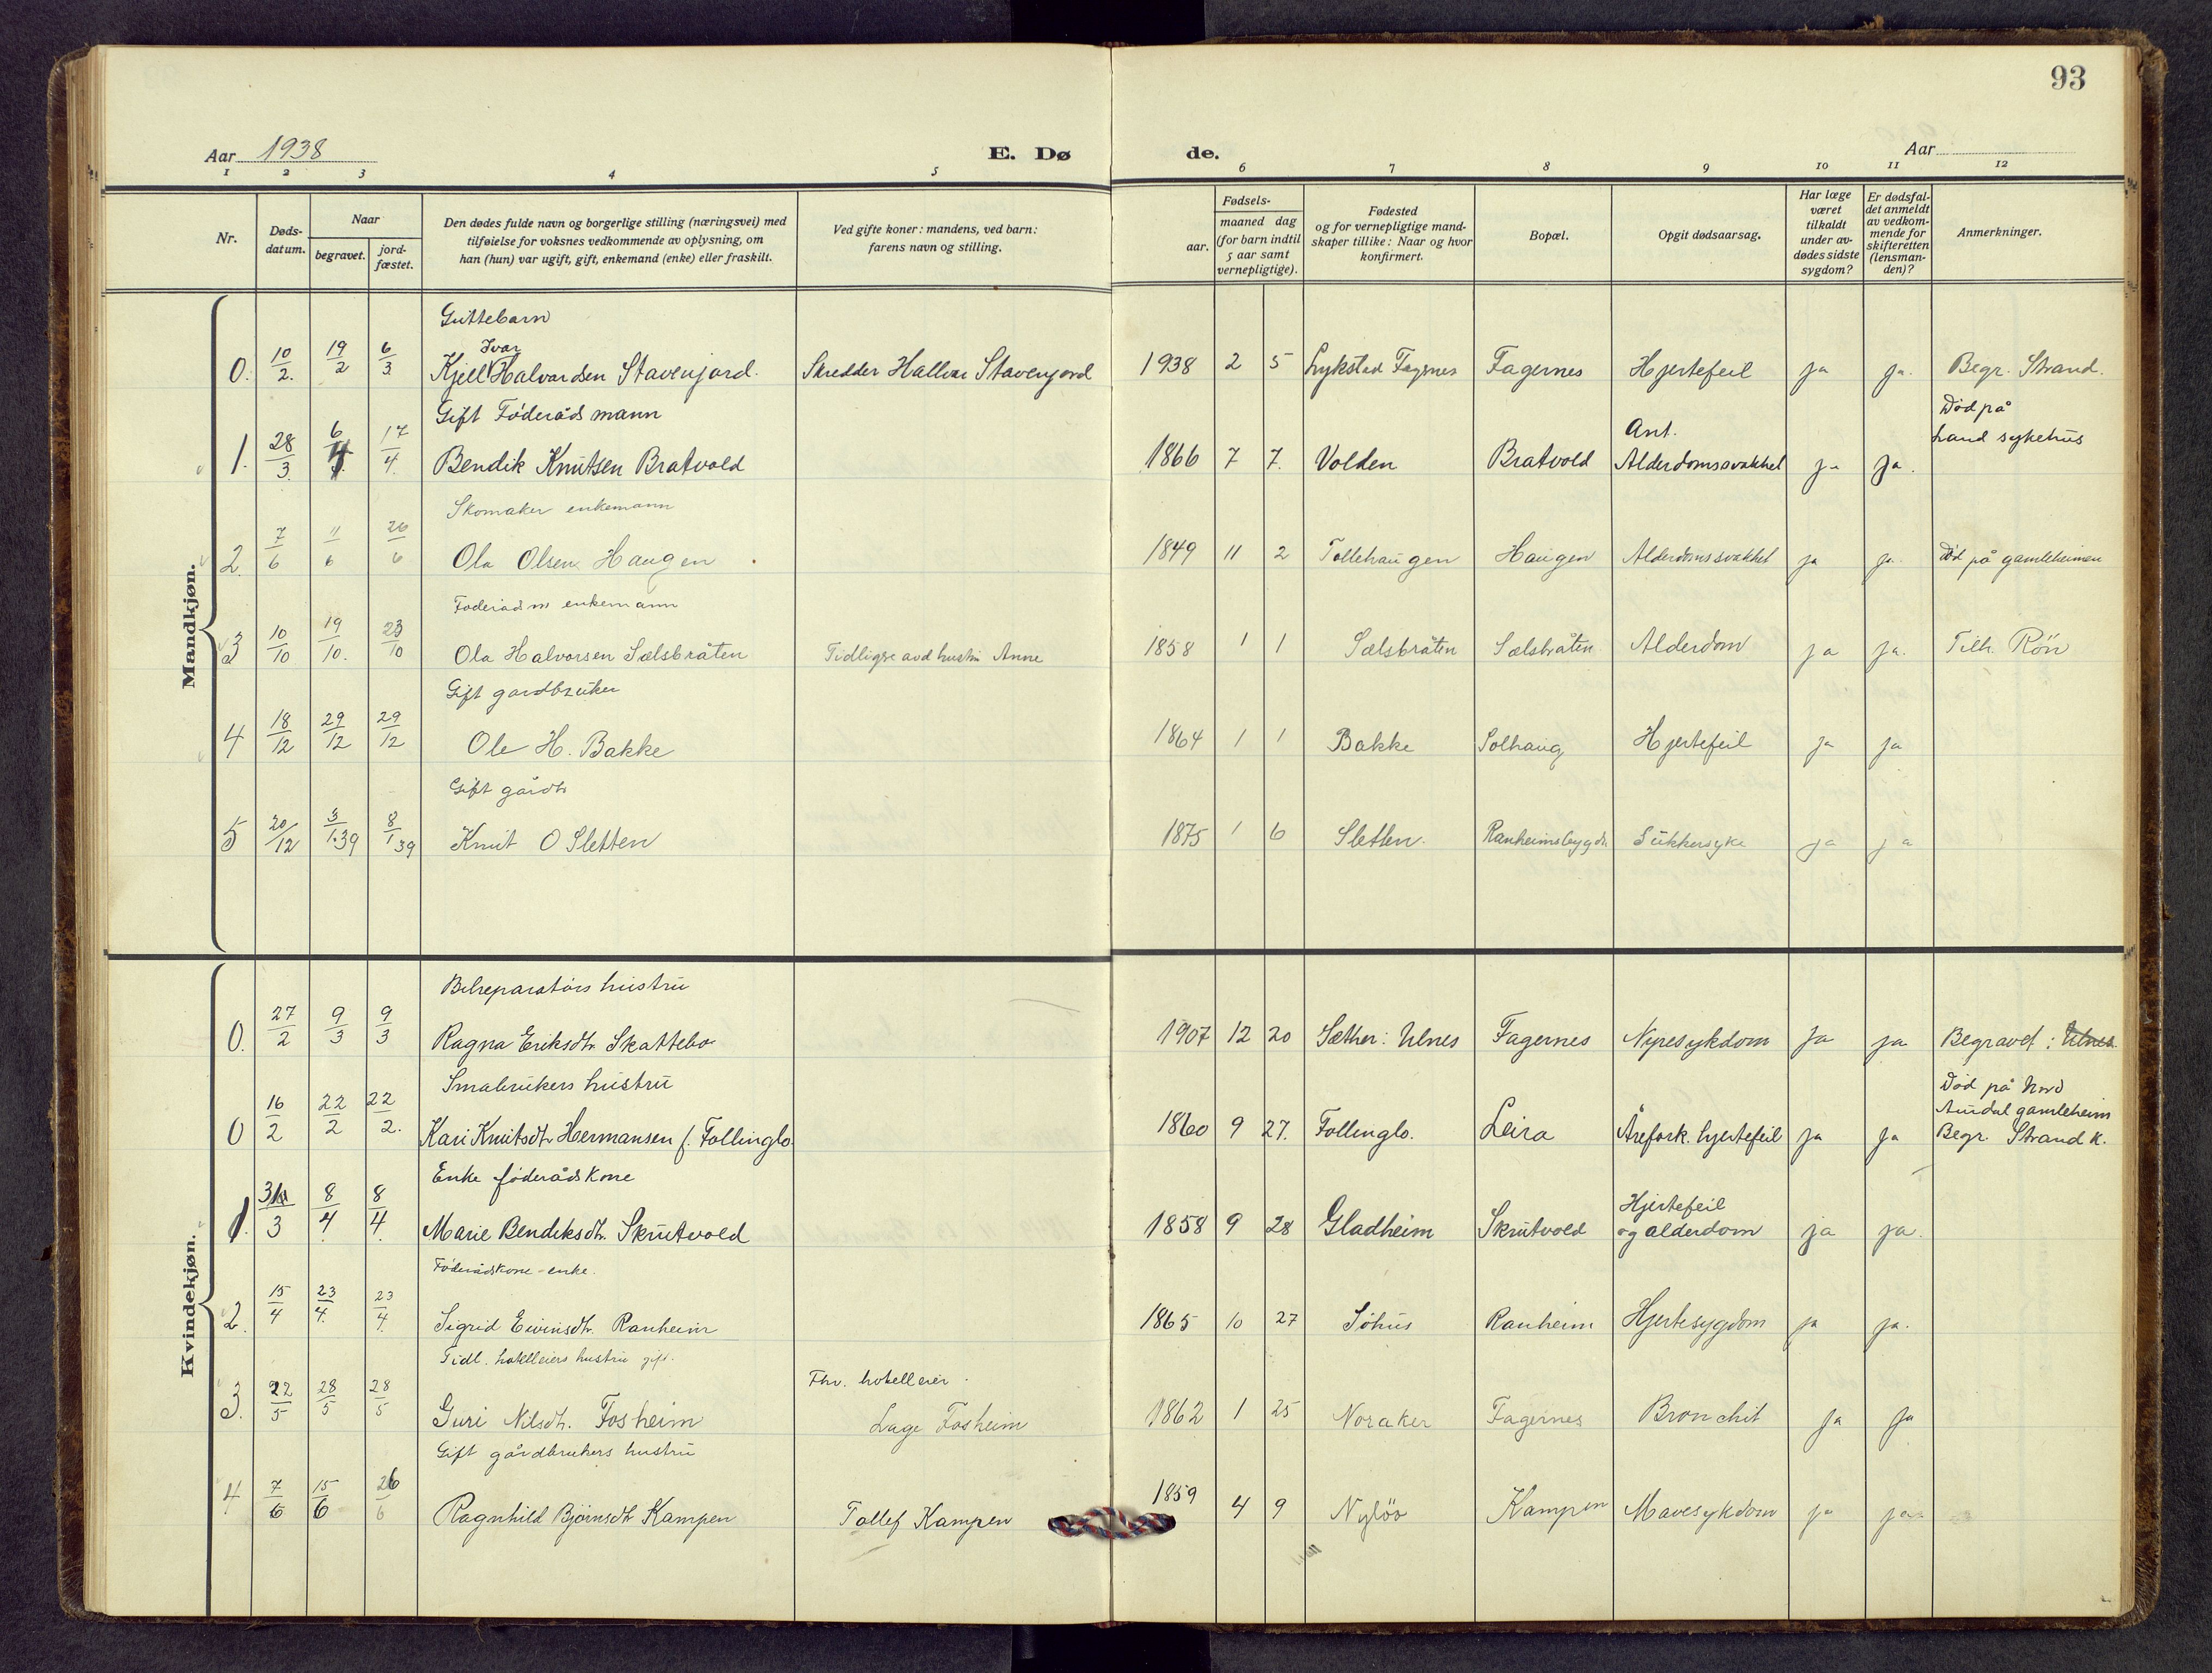 93
Aar 1938 E. Døde. Aar
1 2 3 4 5 6 7 8 9 10 11 12
Nr.
Døds-datum.
Naar
begravet.
jord-fæstet.
Den dødes fulde navn og borgerlige stilling (næringsvei) med
tilføielse for voksnes vedkommende av oplysning, om
han (hun) var ugift, gift, enkemand (enke) eller fraskilt.
Ved gifte koner: mandens, ved barn:
farens navn og stilling.
Fødsels-
aar.
maaned dag
(for barn indtil
5 aar samt
vernepligtige).
Fødested
og for vernepligtige mand-
skaper tillike: Naar og hvor
konfirmert.
Bopæl.
Opgit dødsaarsag.
Har læge
været
tilkaldt
under av-
dødes sidste
sygdom?
Er dødsfal-
det anmeldt
av vedkom-
mende for
skifteretten
(lensman-
den)?
Anmerkninger.
Mandkjøn.
Guttebarn
Ivar
0. 10/2. 19/2 6/3 Kjell Halvardsen Stavenjord. Skredder Hallvar Stavenjord 1938 2 5 Sykstad Fagernes Fagernes Hjertefeil ja ja. Begr. Strand.
Gift Føderåds mann Ant. Død på
Land sykehus
1. 28/3. 6/4 17/4. Bendik Knutsen Bratvold 1866 7 7. Volden Bratvold Alderdomssvakhet ja ja.
Skomaker enkemann
2. 7/6 11/6 26/6 Ola Olsen Haugen 1849 11 2 Tollehaugen Haugen Alderdomssvakhet ja ja. Død på gamleheimen
Føderådsm enkemann
3 10/10 19/10. 23/10 Ola Halvorsen Sælsbråten Tidligere avd hustru Anne 1858 1 1 Sælsbråten Sælsbråten Alderdom ja ja. Tilh. Røn
Gift gardbruker
4 18/12 29/12 29/12 Ole H. Bakke 1864 1 1 Bakke Solhaug Hjertefeil ja ja
Gift gårdb
5 20/12 3/1.39 8/1 39 Knut O Sletten 1875 1 6 Sletten. Ranheimsbygda Sukkersyke ja ja
Kvindekjøn.
Bilreparatørs hustru
0. 27/2 9/3 9/3 Ragna Eriksdtr. Skattebo 1907 12 20 Sæther: Ulnes Fagernes Nyresykdom ja ja Begravet: Ulnes
Småbrukers hustru Død på Nord
Aurdal gamleheim
0 16/2 22/2 22/2. Kari Knutsdtr Hermansen f. Follinglo. 1860 9 27. Follinglo. Leira Årefork. hjertefeil ja ja Begr. Strand k.
Enke føderådskone Hjertefeil
1. 31/3 8/4 8/4. Marie Bendiksdtr. Skrutvold 1858 9 28 Gladheim Skrutvold og alderdom ja ja.
Føderådskone - enke.
2. 15/4 23/4. 23/4. Sigrid Eivinsdtr. Ranheim 1865 10 27 Søhus Ranheim Hjertesygdom ja ja.
Tidl. hotelleiers hustru gift. Fhv. hotelleier.
3. 22/5 28/5 28/5 Guri Nilsdtr. Fosheim Lage Fosheim 1862 1 25 Noraker Fagernes Bronchit ja ja
Gift gårdbrukers hustru
4 7/6 15/6 26/6 Ragnhild Bjørnsdtr Kampen Tollef Kampen 1859 4 9 Nyløo Kampen Mavesykdom ja ja.